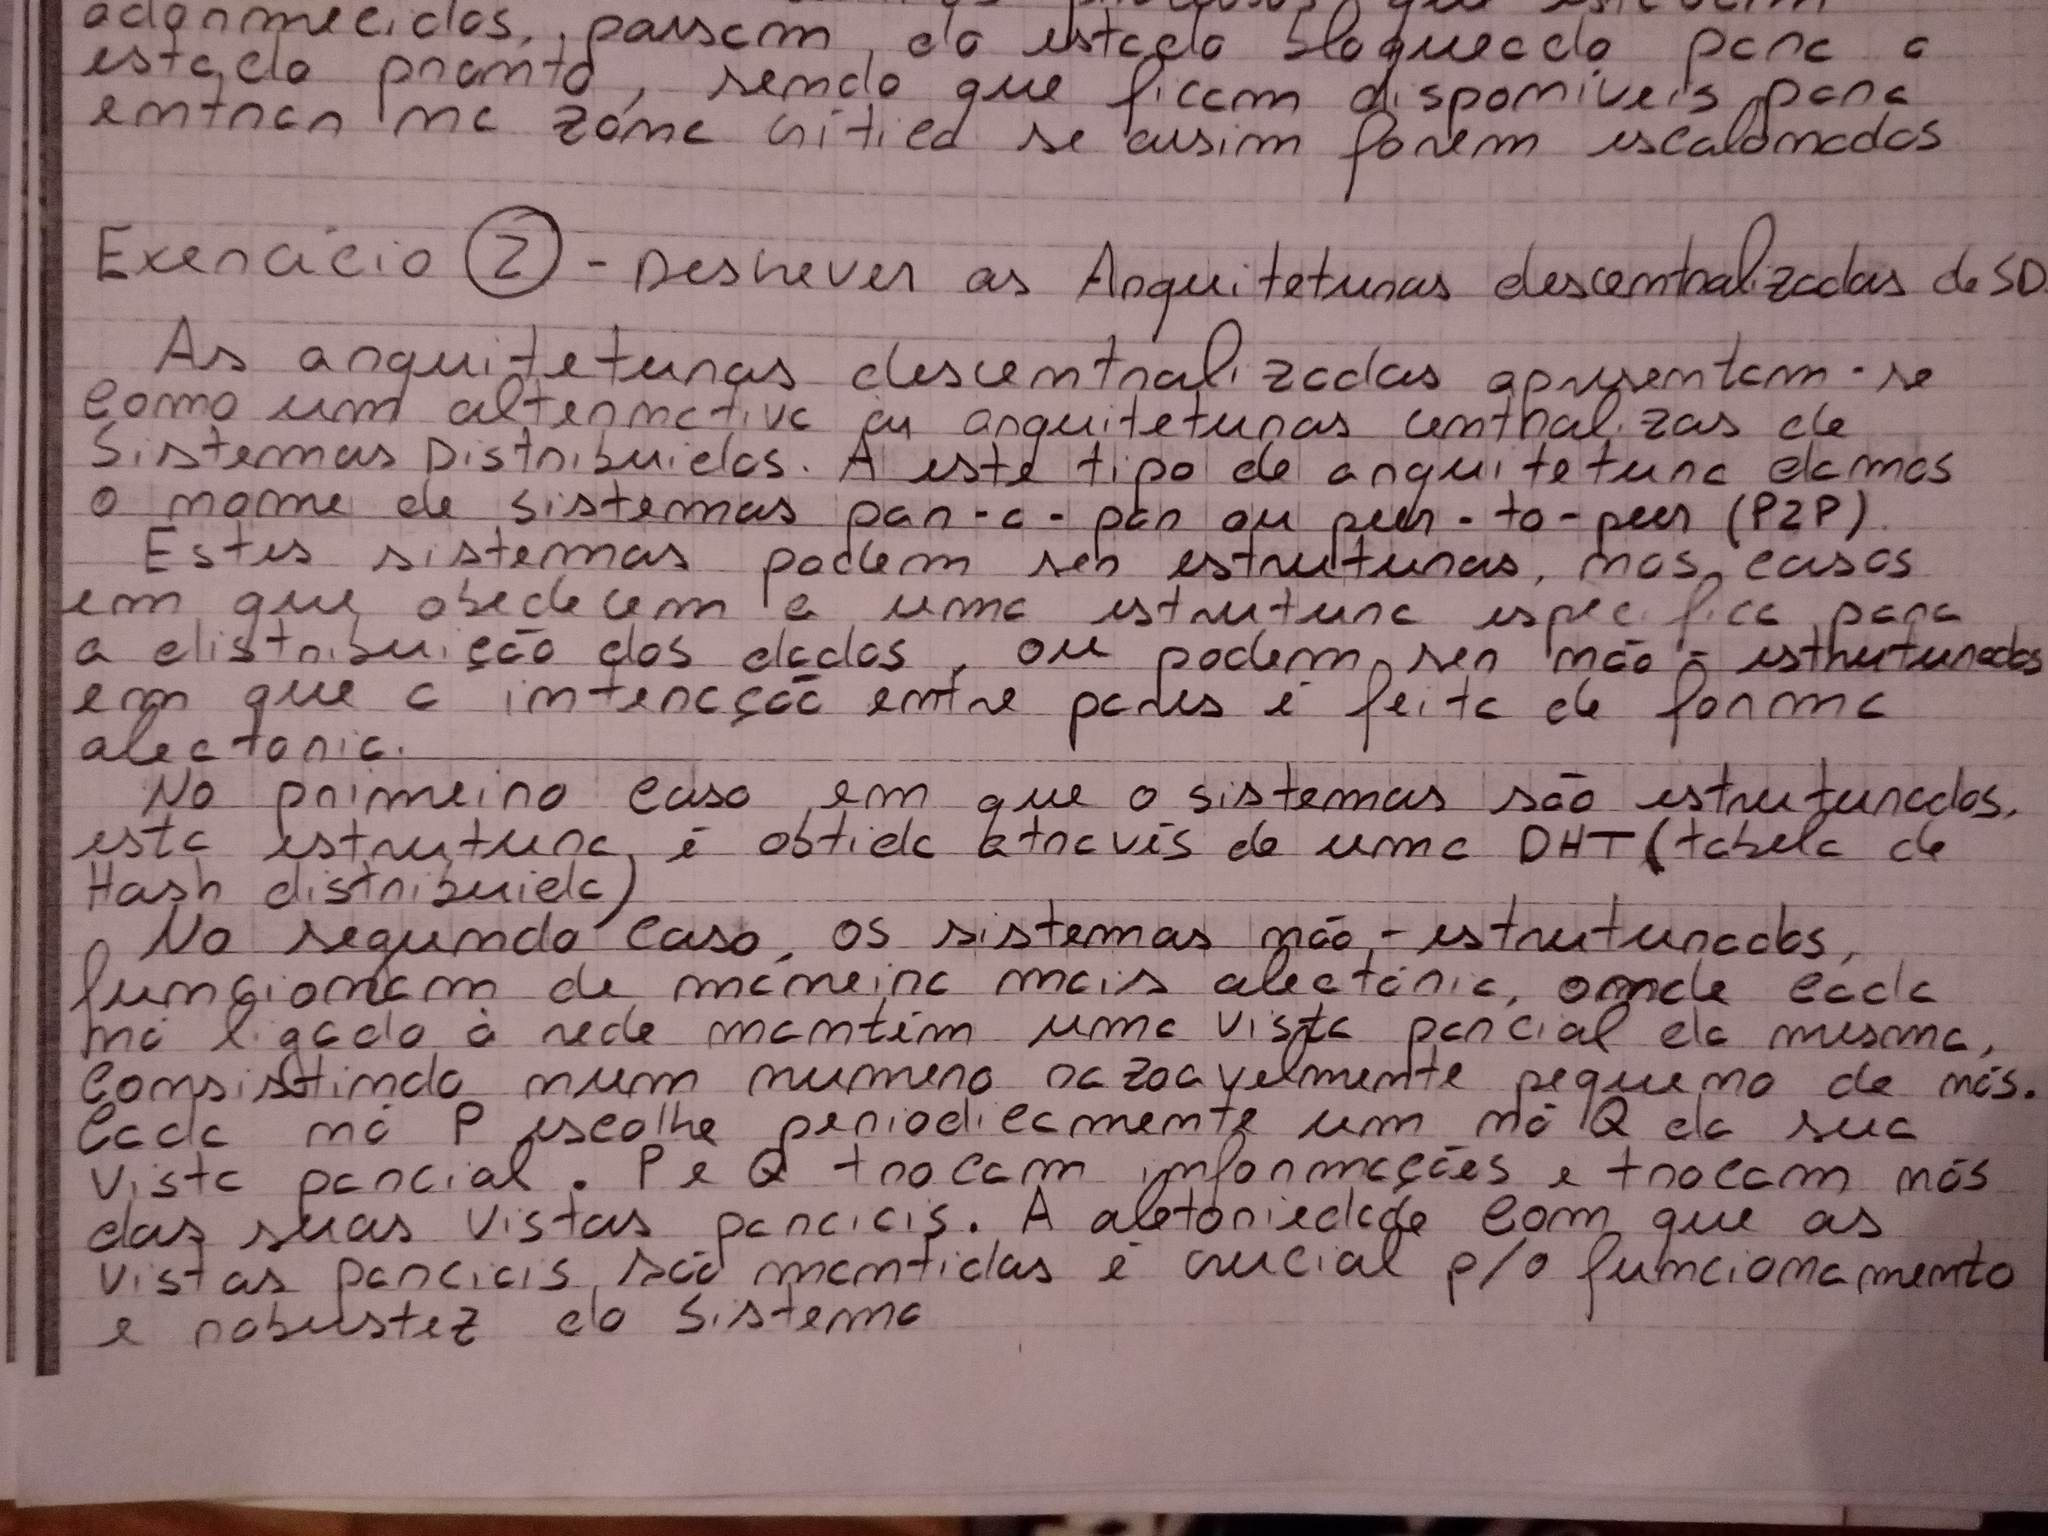 processos, que estivem
adormecidos, passam do estado bloqueado para o
estado pronto, sendo que ficam disponíveis para
entrar na zona crítica se assim forem escalonados
Exercício 2 - Descrever as Arquiteturas descentralizadas de SD.
As arquiteturas descentralizadas apresentam-se
como um alternativa às arquiteturas centralizas de
Sistemas Distribuidos. A este tipo de arquitetura damos
o nome de sistemas par-a-par ou peer-to-peer (P2P).
Estes sistemas podem ser estruturas, nos casos
em que obedecem a uma estrutura especifica para
a distribuição dos dados, ou podem ser não-estruturados
em que a interacção entre pares é feita de forma
aleatoria.
No primeiro caso em que o sistemas são estruturados,
esta estrutura é obtida através de uma DHT (tabela de
Hash distribuida)
No segundo caso, os sistemas não-estruturados,
funcionam de maneira mais aleatória, onde cada
nó ligado à rede mantém uma vista parcial da mesma,
consistindo num numero razoavelmente pequeno de nós.
Cada nó P escolhe periodicamente um nó Q da sua
vista parcial. P e Q trocam informações e trocam nós
das suas vistas parciais. A aletoriedade com que as
vistas parciais são mantidas é crucial p/o funcionamento
e robustez do sistema